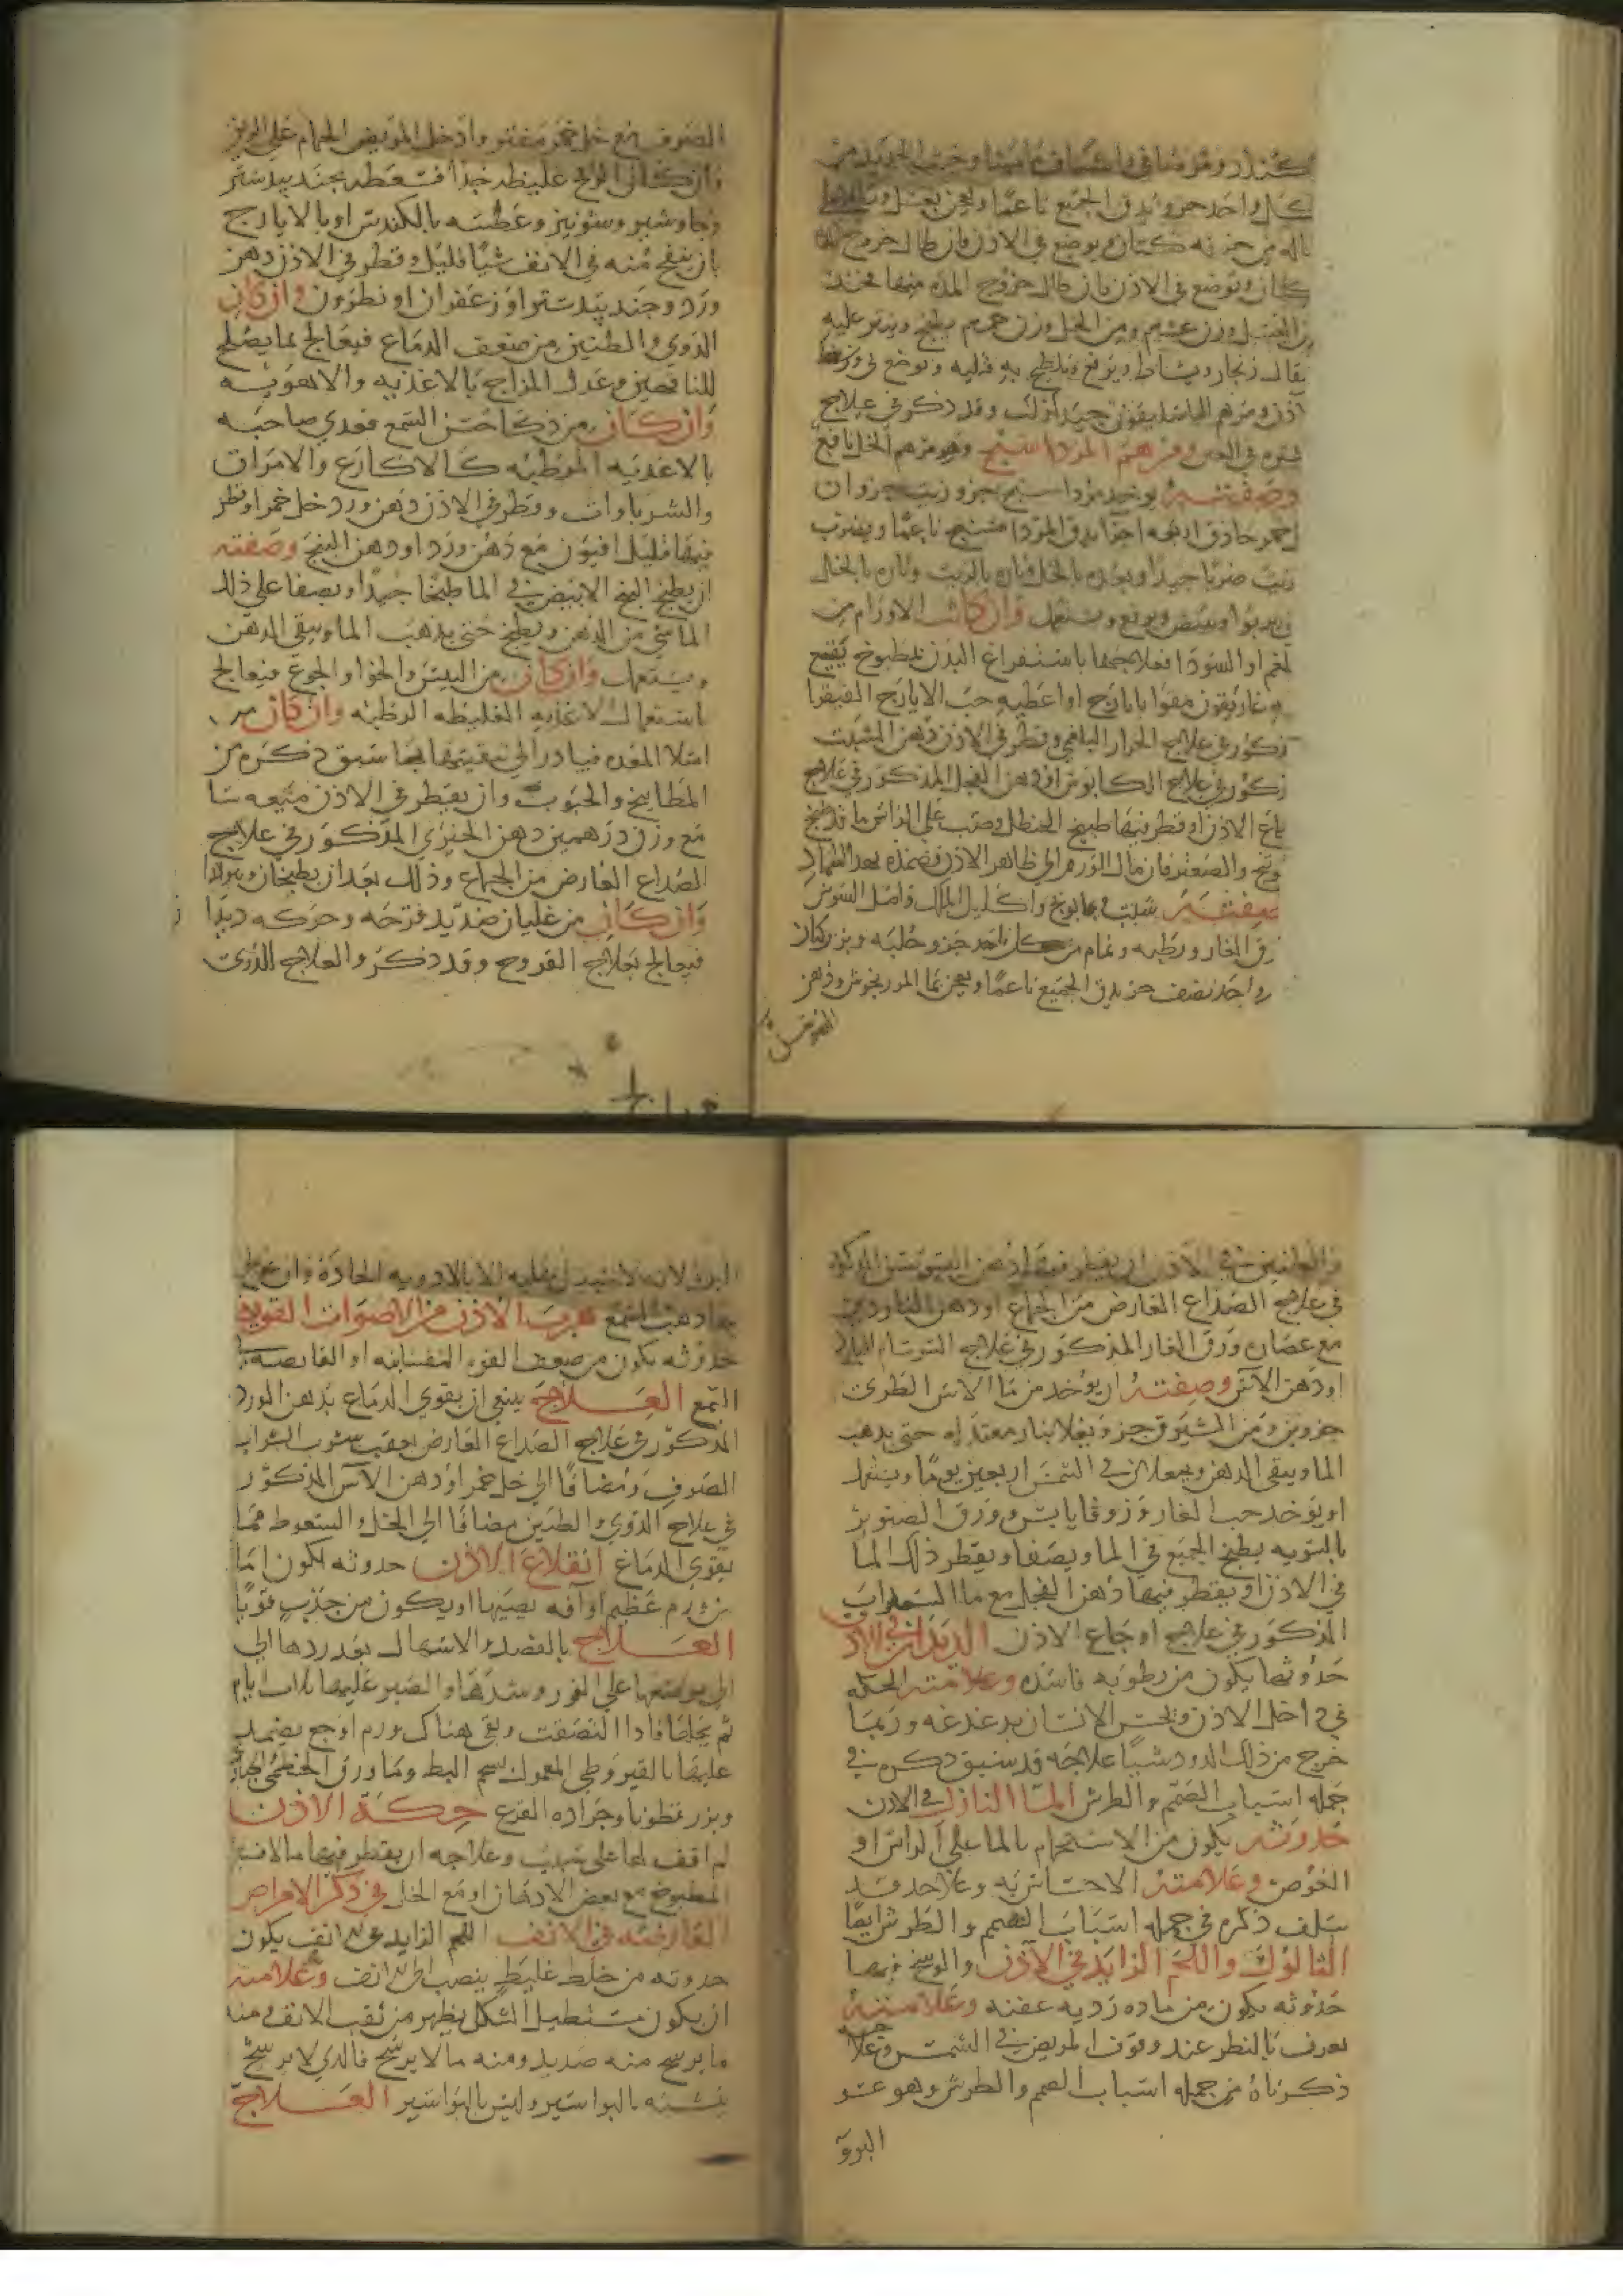 كندر ومر وصافي واشياف ماميثا وخبث الحديد من
كل واحد جزو يدق الجميع ناعما ويعجن بعسل
كتان ويوضع في الاذن فان طال خروج المده منها فخذ
من العسل وزن عشره ومن الخل وزن يطبخ ويذر عليه
مثقال زنجار ويشاط ويرفع ويلطخ به فتيله وتوضع في
اذن ومرهم الباسليقون جيد لذلك وقد ذكر في علاج
في العين ومرهم المرداسنج وهو مرهم الخل نافع
وصفته يوخذ مرداسنج جزو زيت جزوان
خمر حاذق اربعه اجزا يدق المرداسنج ناعما ويضرب
زيت ضربا جيدا وبعده بالخل تاره بالزيت وتاره بالخل
يربوا ويبيض ويرفع ويستعمل وان كانت الاورام من
بلغم او السودا فعلاجها باستفراغ البدن بمطبوخ
وغاريقون مقوا بايارج او اعطيه حب الايارج الفيقرا
مذكور في علاج الخمار البلغمي وقطر في الاذن دهن الشبت
مذكور في علاج الكابوس او دهن الفجل المذكور في علاج
الاذن او قطر فيها طبيخ الحنظل وصب على الراس ما قد طبخ
والصعتر فان مال الورم الى ظاهر الاذن فضمده بهذا الضماد
صفته شبت وبابونج واكليل الملك واصل السوس
ورق الغار ورطبه ونمام من كل واحد جزو حلبه وبزر كتان
واحد نصف جز يدق الجميع ناعما ويعجن بما المرزنجوش ودهن
الصوف مع خل خمر مفتر وادخل المريض الحمام على الريق
وان كان الريح غليظه جدا فتعطر بجند بيدستر
وجاوشير وشونيز وعطسه بالكندس او بالايارج
بان ينفخ منه في الانف شيا قليل وقطر في الاذن دهن
ورد وجند بيدستر او زعفران او نطرون وان كان
الدوي والطنين من ضعف الدماغ فيعالج بما يصلح
للناقهين وعدل المزاج بالاغذيه والاهويه
وان كان من ذكا حس السمع فغدي صاحبه
بالاغذيه المرطبه كالاكارع والامراق
والشرباوات وقطر في الاذن دهن ورد وخل خمر او قطر
فيها قليل افيون مع دهن ورد او دهن البنج وصفته
ان يطبخ البنج الابيض في الما طبخا جيدا ويصفا على ذلك
الما شي من الدهن ويطبخ حتى يذهب الما ويبقى الدهن
ويستعمل وان كان من اليبس والخوا والجوع فيعالج
باستعمال الاغذيه الغليظه الرطبه وان كان من
امتلا المعده فبادر الى تنقيتها بما سبق ذكره من
المطابيخ والحبوب وان يقطر في الاذن ميعه سا
مع وزن درهمين دهن الخيري المذكور في علاج
الصداع العارض من الجماع وذلك بعد ان يطبخان
وان كان من غليان صديد قرحه وحركه ديدا
فيعالج بعلاج القروح وقد ذكر والعلاج الدوي
والطنين في الاذن ان يقطر فيها دهن السوسن المذكور
في علاج الصداع العارض من الجماع او دهن الناردين
مع عصاره ورق الغار المذكور في علاج السرسام البارد
او دهن الآس وصفته ان يؤخذ من ما الاس الطري
جزوين ومن الشيرق جزو يغلا بنار معتدله حتى يذهب
الما ويبقى الدهن ويجعل في الشمس اربعين يوما ويستعمل
او يؤخذ حب الغار وزوفا يابس وورق الصنوبر
بالسويه يطبخ الجميع في الما ويصفا ويقطر ذلك الما
في الاذن او يقطر فيها دهن الفجل مع ما السداب
المذكور في علاج اوجاع الاذن الديدان في الاذن
حدوثها يكون من رطوبه فاسده وعلامته الحكه
في داخل الاذن ويحس الانسان بدغدغه وربما
خرج من ذلك الدود شيا علاجه قد سبق ذكره في
جمله اسباب الصمم والطرش الما النازل في الاذن
حدوثه يكون من الاستحمام بالما على الراس او
الغوص وعلامته الاحساس به وعلاجه قد
سلف ذكره في جمله اسباب الصمم والطرش ايضا
الثالوك واللحم الزايد في الآذن والوسخ فيها
حدوثه يكون من ماده رديه عفنه وعلامته
يعرف بالنظر عند وقوف المريض في الشمس وعلاجه
ذكرناه في جمله اسباب الصمم والطرش وهو عسر
البرؤ
البرو لانه لا يندمل عليه الا بالادويه الحاده وان
بها ذهب السمع هرب الاذن من الاصوات القويه
حدوثه يكون من ضعف القوه النفسانيه او الفايضه
السمع العلاج ينبغي ان يقوي الدماغ بدهن الورد
المذكور في علاج الصداع العارض بعقب شرب الشراب
الصرف مضافا الى خل خمر او دهن الآس المذكور
في علاج الدوي والطنين مضافا الى الخل والسعوط مما
يقوي الدماغ انقلاع الاذن حدوثه يكون اما
من ورم عظيم او آفه تصيبها او يكون من جذب قويا
العلاج بالفصد والاسهال بعد ردها الى
الى موضعها على الفور وشدها والصبر عليها ثلاث ايام
ثم يحلها فاذا التصقت وبقي هناك ورم او جع يضمد
عليها بالقيروطي المعمول بشحم البط وما ورق الخطمي
وبزر قطونا وجراده القرع حكة الاذن
لم اقف لها على سبب وعلاجه ان يقطر فيها ما الافسنتين
المطبوخ مع بعض الادهان او مع الخل في ذكر الامراض
العارضه في الانف اللحم الزايد في الانف يكون
حدوثه من خلط غليظ ينصب الى الانف وعلامته
ان يكون مستطيل الشكل يظهر من ثقب الانف ومنه
ما يرشح منه صديد ومنه ما لا يرشح فالذي لا يرشح
يشبه بالبواسير وليس بالبواسير العلاج